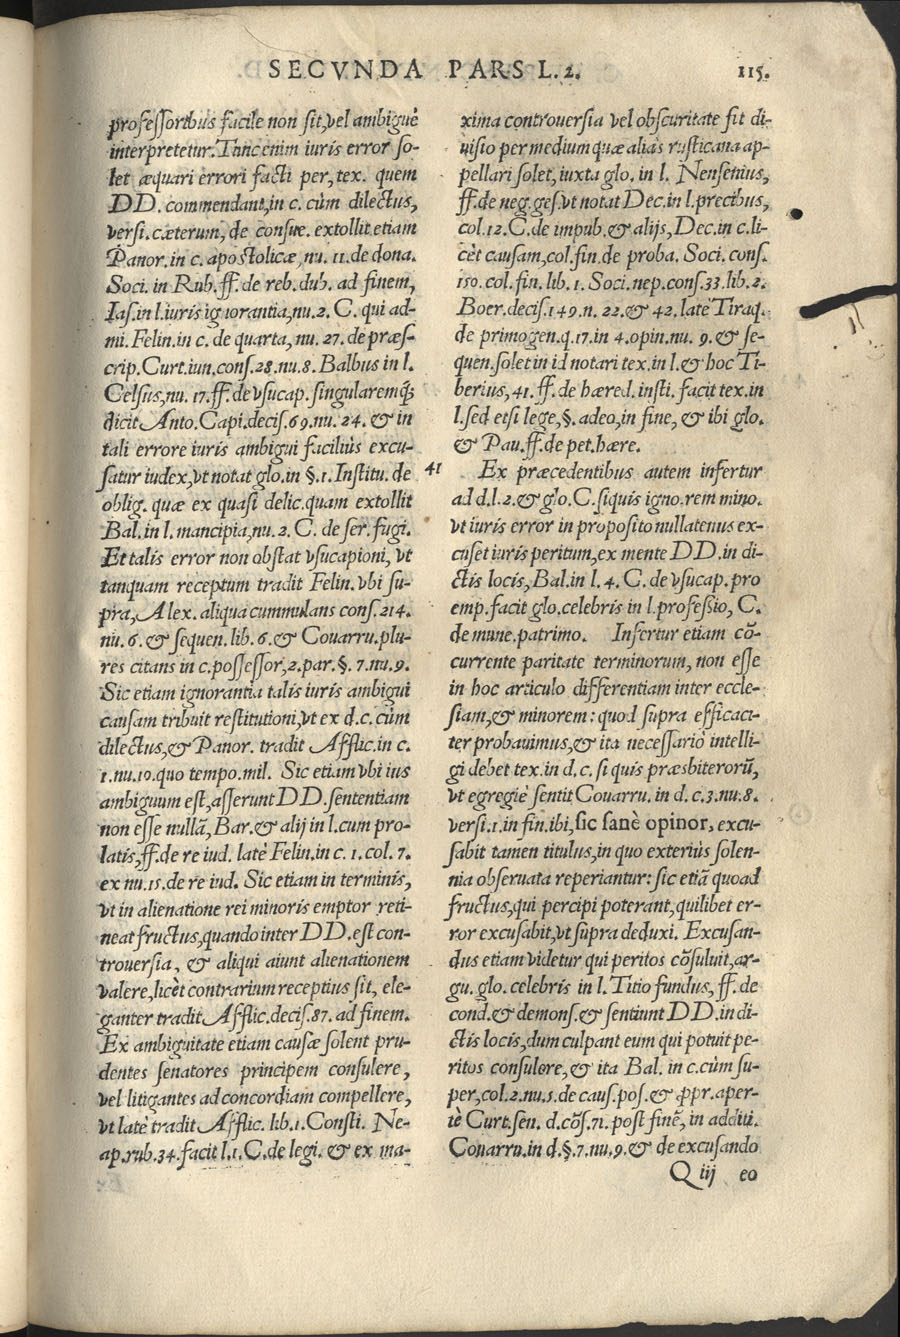 SECVNDA PARS L. 2. 115.
professoribus facile non sit, vel ambiguè
interpretetur. Tunc enim iuris error so-
let æquari errori facti per, tex. quem
DD. commendant, in c. cùm dilectus,
versi. cæterum, de consue. extollit etiam
Panor. in c. apostolicæ, nu. 11. de dona.
Soci. in Rub. ff. de reb. dub. ad finem,
Ias. in l. iuris ignorantia, nu. 2. C. qui ad-
mi. Felin. in c. de quarta, nu. 27. de præs-
crip. Curt. iun. cons. 28. nu. 8. Balbus in l.
Celsus, nu. 17. ff. de vsucap. singularemq́;
dicit Anto. Capi. decis. 69. nu. 24. & in
tali errore iuris ambigui faciliùs excu-
satur iudex, vt notat glo. in §. 1. Institu. de
oblig. quæ ex quasi delic. quam extollit
Bal. in l. mancipia, nu. 2. C. de ser. fugi.
Et talis error non obstat vsucapioni, vt
tanquam receptum tradit Felin. vbi su-
pra, Alex. aliqua cummulans cons. 214.
nu. 6. & sequen. lib. 6. & Couarru. plu-
res citans in c. possessor, 2. par. §. 7. nu. 9.
Sic etiam ignorantia talis iuris ambigui
causam tribuit restitutioni, vt ex d. c. cùm
dilectus, & Panor. tradit Afflic. in c.
1. nu. 19. quo tempo. mil. Sic etiam vbi ius
ambiguum est, asserunt DD. sententiam
non esse nullã, Bar. & alij in l. cum pro-
latis, ff. de re iud. latè Felin. in c. 1. col. 7.
ex nu. 15. de re iud. Sic etiam in terminis,
vt in alienatione rei minoris emptor reti-
neat fructus, quando inter DD. est con-
trouersia, & aliqui aiunt alienationem
valere, licèt contrarium receptius sit, ele-
ganter tradit Afflic. decis. 87. ad finem.
Ex ambiguitate etiam causæ solent pru-
dentes senatores principem consulere,
vel litigantes ad concordiam compellere,
vt latè tradit Afflic. lib. 1. Consti. Ne-
ap. rub. 34. facit l. 1. C. de legi. & ex ma-
xima controuersia vel obscuritate fit di-
uisio per medium quæ aliàs rusticana ap-
pellari solet, iuxta glo. in l. Nensenius,
ff. de neg. ges. vt notat Dec. in l. precibus,
col. 12. C. de impub. & alijs, Dec. in c. li-
cèt causam, col. fin. de proba. Soci. cons.
150. col. fin. lib. 1. Soci. nep. cons. 33. lib. 2.
Boer. decis. 149. n. 22. & 42. latè Tiraq.
de primogen. q. 17. in 4. opin. nu. 9. & se-
quen. solet in id notari tex. in l. & hoc Ti-
berius, 41. ff. de hæred. insti. facit tex. in
l. sed etsi lege, §. adeo, in fine, & ibi glo.
& Pau. ff. de pet. hære.
41 Ex præcedentibus autem infertur
ad d. l. 2. & glo. C. si quis igno. rem mino.
vt iuris error in proposito nullatenus ex-
cuset iuris peritum, ex mente DD. in di-
ctis locis, Bal. in l. 4. C. de vsucap. pro
emp. facit glo. celebris in l. professio, C.
de mune. patrimo. Infertur etiam cõ-
currente paritate terminorum, non esse
in hoc articulo differentiam inter eccle-
siam, & minorem: quod supra efficaci-
ter probauimus, & ita necessariò intelli-
gi debet tex. in d. c. si quis præsbiterorũ,
vt egregiè sentit Couarru. in d. c. 3. nu. 8.
versi. 1. in fin. ibi, sic sanè opinor, excu-
sabit tamen titulus, in quo exteriùs solen-
nia obseruata reperiantur: sic etiã quoad
fructus, qui percipi poterant, quilibet er-
ror excusabit, vt supra deduxi. Excusan-
dus etiam videtur qui peritos cõsuluit, ar-
gu. glo. celebris in l. Titio fundus, ff. de
cond. & demons. & sentiunt DD. in di-
ctis locis, dum culpant eum qui potuit pe-
ritos consulere, & ita Bal. in c. cùm su-
per, col. 2. nu. 5. de caus. pos. & ꝓpr. aper-
tè Curt. sen. d. cõs. 71. post finẽ, in additi.
Couarru. in d. §. 7. nu. 9. & de excusando
Q iij eo